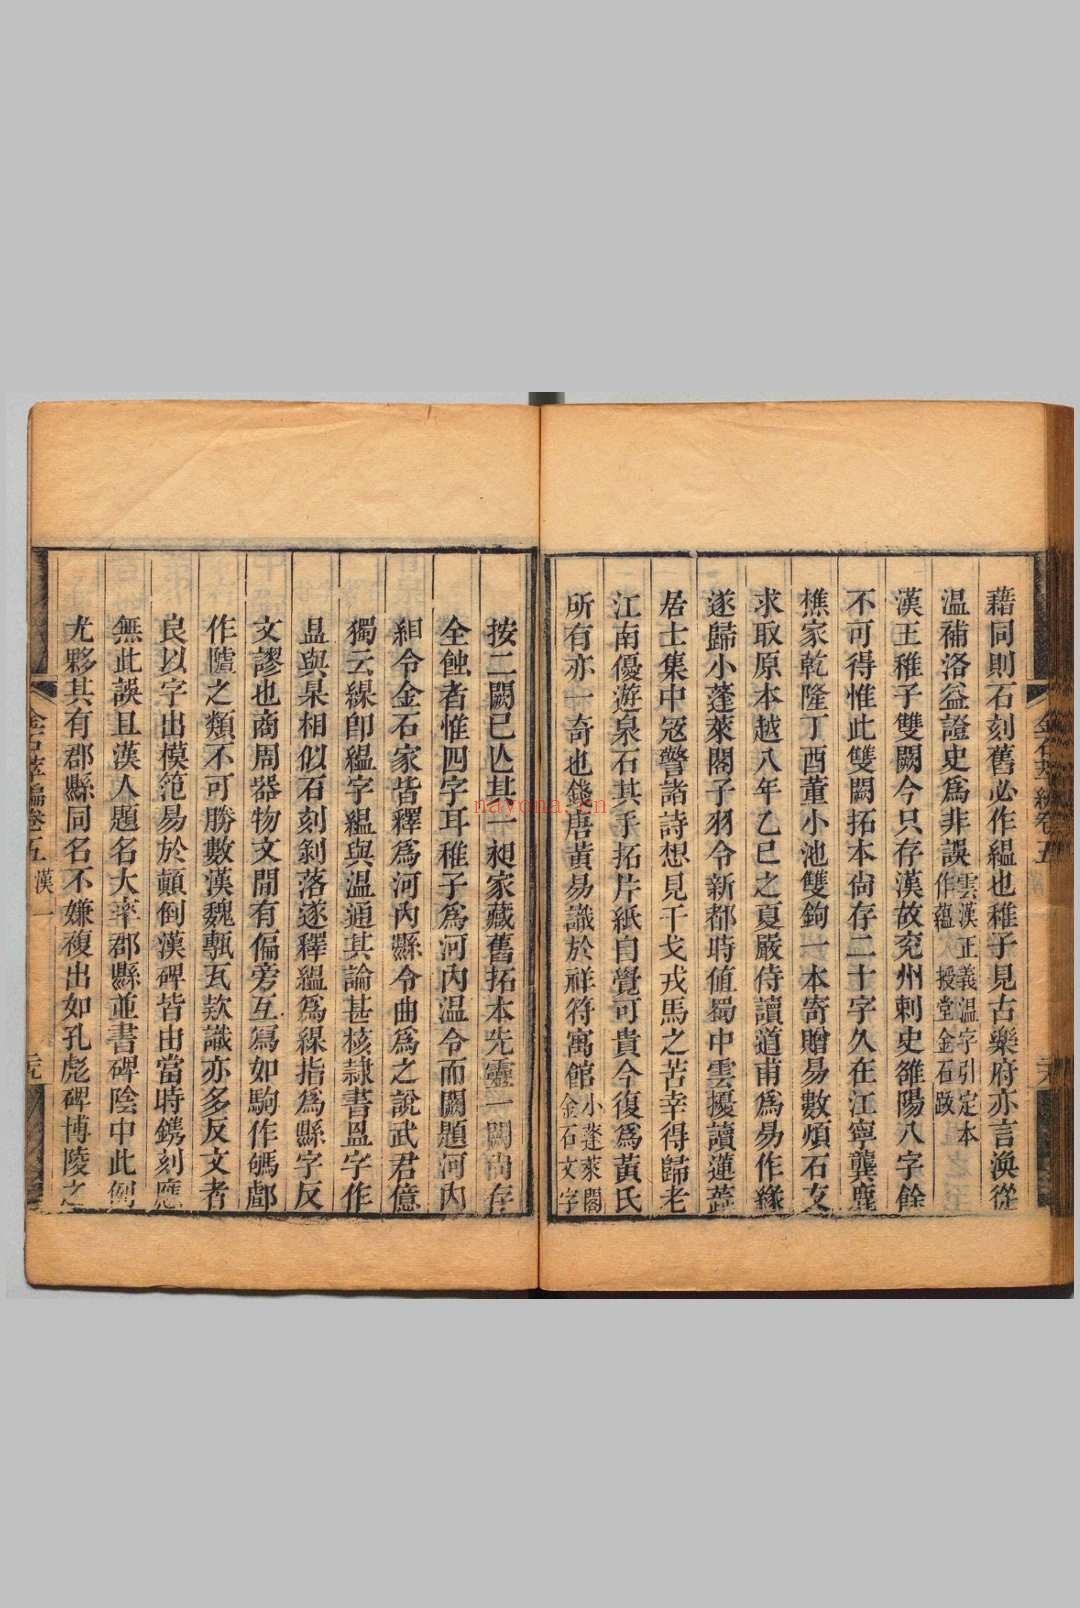 藉同則石刻舊必作縕也稚子見古樂府亦言渙從
温補洛益證史爲非誤雲漢正義温字引定本作蘊授堂金石跋
漢王稚子雙闕今只存漢故兖州刺史雒陽八字餘
不可得惟此雙闕拓本尙存二十字久在江寧龔鹿
樵家乾隆丁酉董小池雙鉤一本寄贈易數煩石友
求取原本越八年乙巳之夏嚴侍讀道甫爲易作緣
遂歸小蓬萊閣子羽令新都時値蜀中雲擾讀蓮蕋
居士集中寇警諸詩想見干戈戎馬之苦幸得歸老
江南優遊泉石其手拓片紙自覺可貴今復爲黃氏
所有亦一奇也錢唐黃易識於祥符寓館小蓬萊閣金石文字
金石萃編卷五
按二闕已亾其一昶家藏舊拓本先靈一闕尙存
全蝕者惟四字耳稚子爲河內温令而闕題河內
緼令金石家皆釋爲河內縣令曲爲之說武君億
獨云縣卽緼字緼與温通其論甚核隷書昷字作
昷與杲相似石刻剝落遂釋緼爲縣指爲縣字反
文謬也商周器物文閒有偏旁互寫如駒作碼鄌
作隵之類不可勝數漢魏甎瓦欵識亦多反文者
良以字出模范易於顚倒漢碑皆由當時鐫刻應
無此誤且漢人題名大率郡縣並書碑陰中此例
尤夥其有郡縣同名不嫌複出如孔彪碑博陵之
金石萃編卷五 漢一